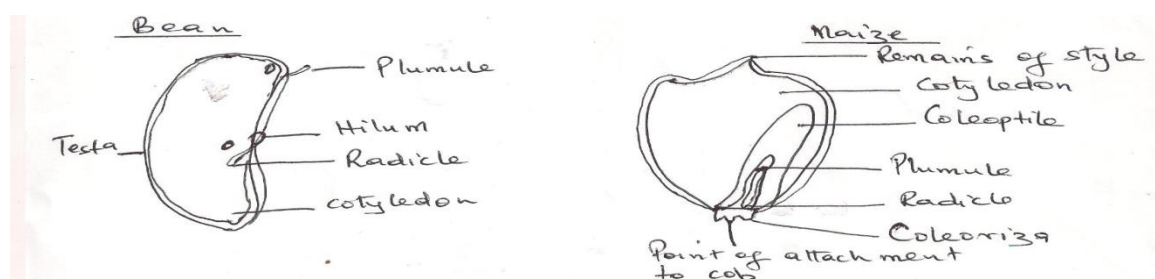 Bean
Plumule
Testa
Hilum
Radicle
cotyledon
Maize
Remains of style
Cotyledon
Coleoptile
Plumule
Radicle
Coleoriza
Point of attachment
to cob